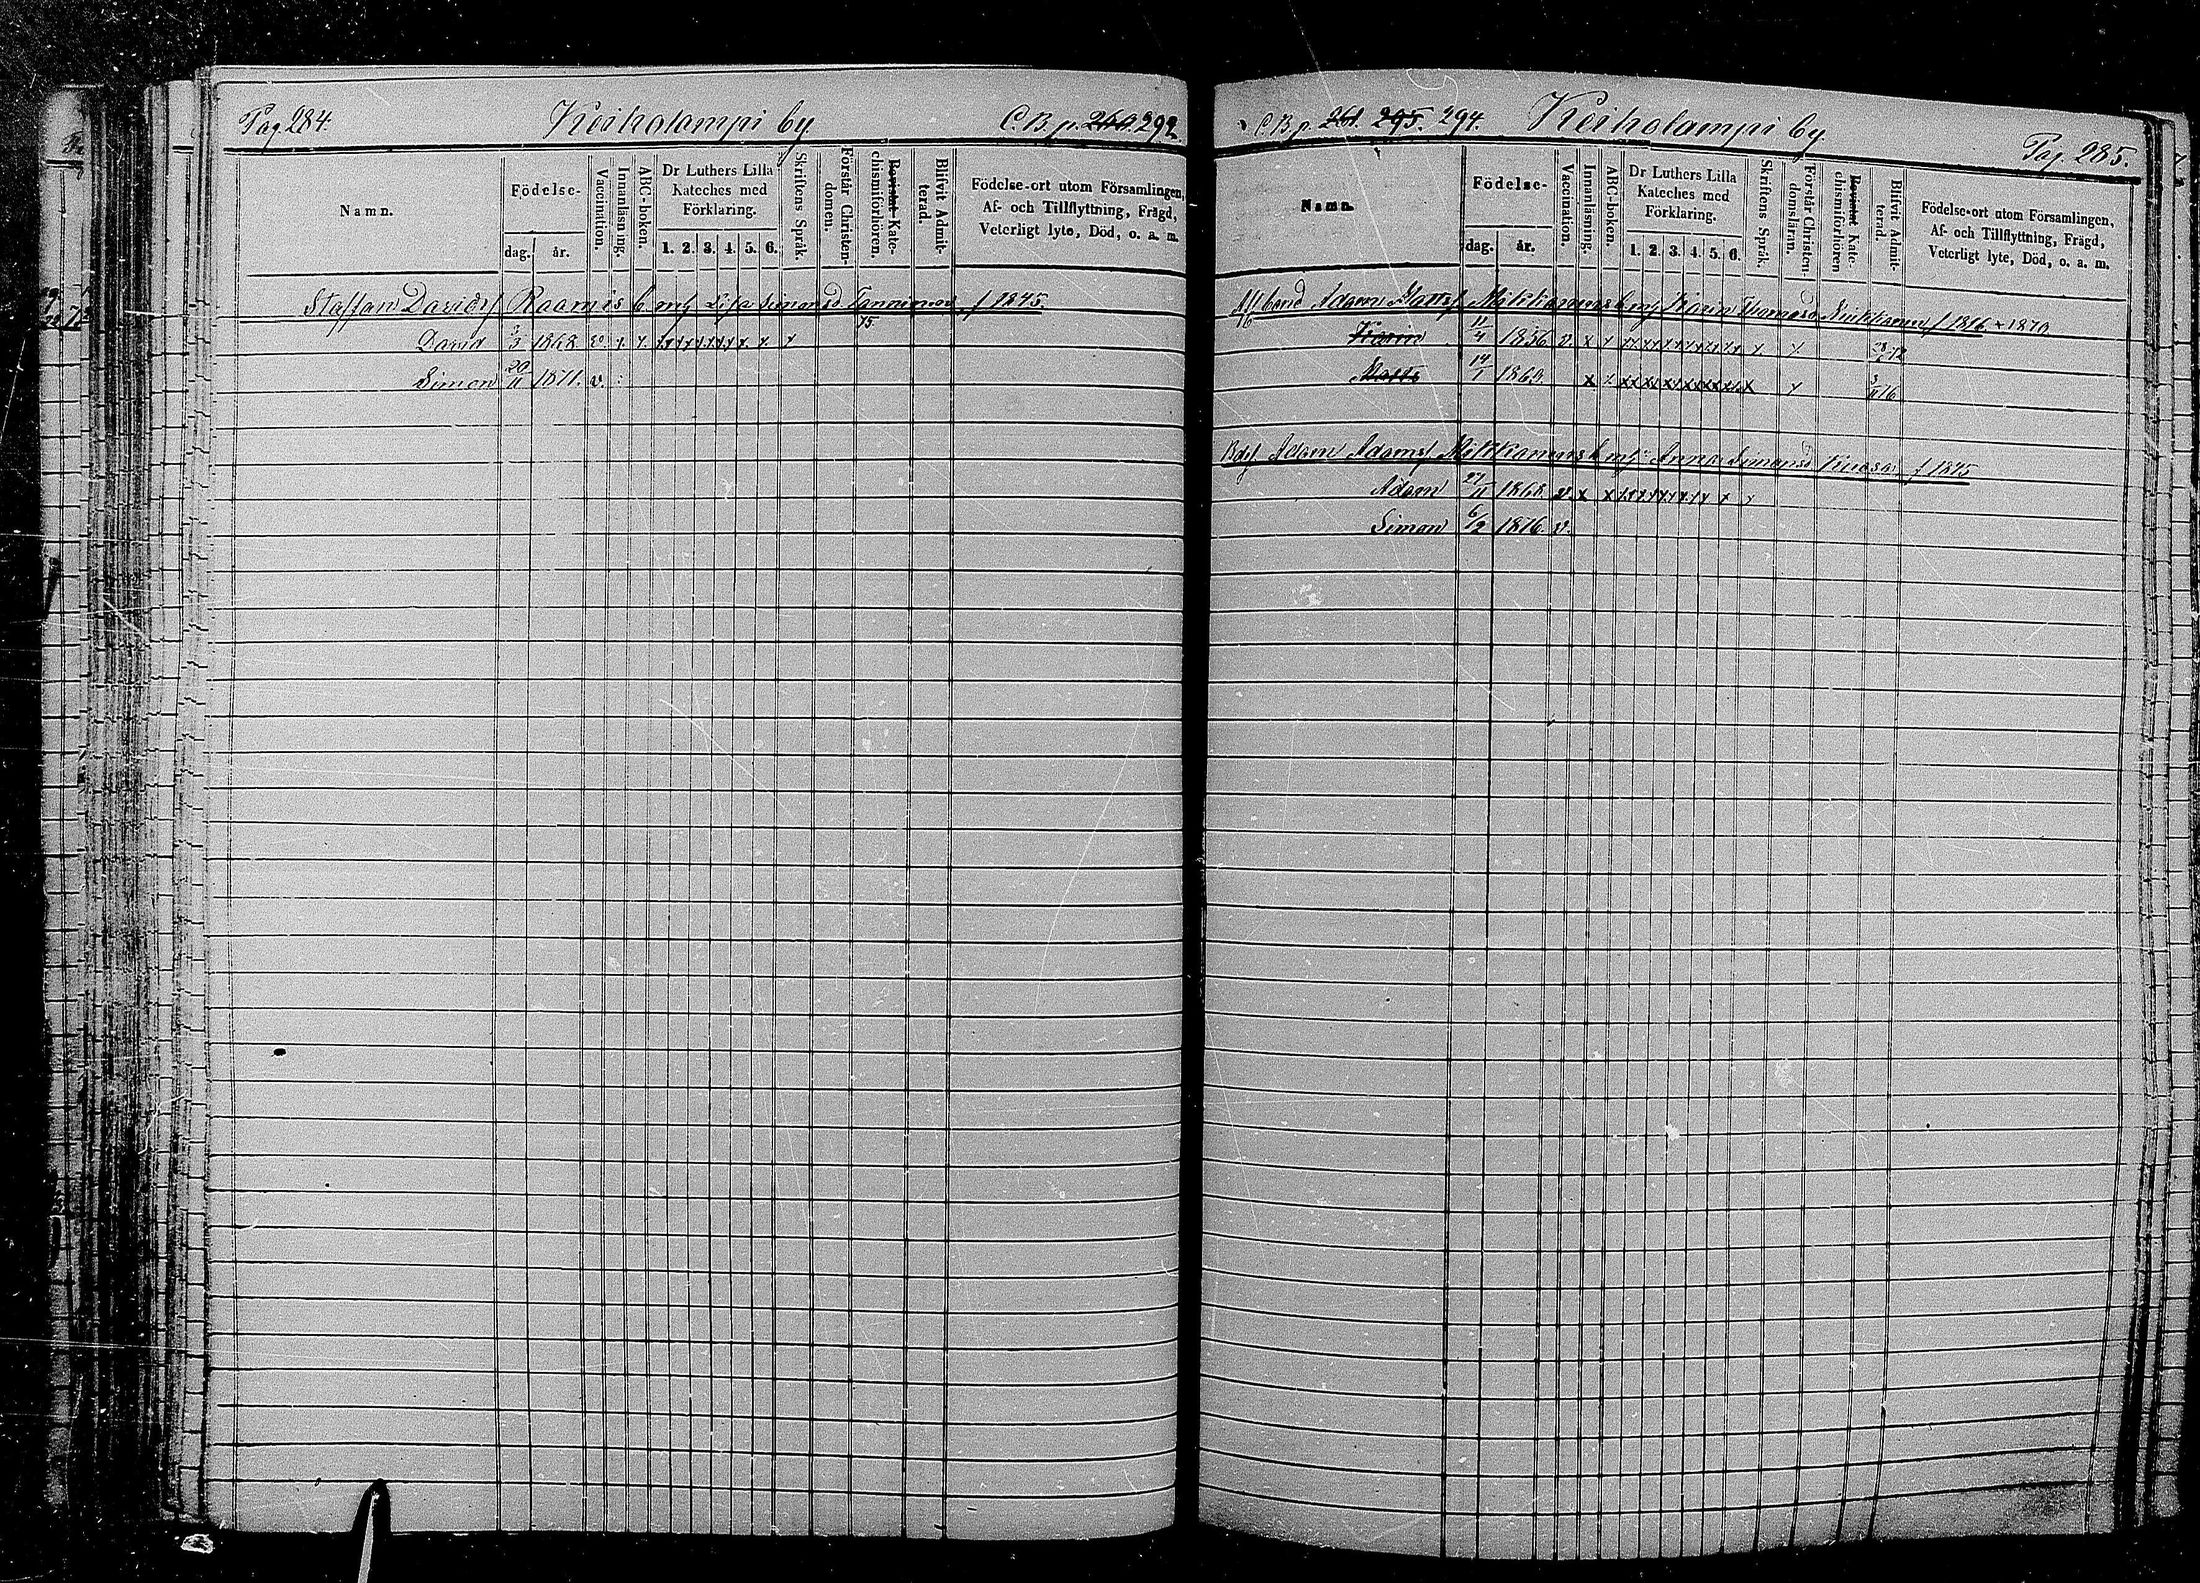 Pag 284.
Keiholampi by
C.B.p. 260. 292
Namn.
Födelse-
dag. år.
Vaccination.
Innanläsning.
ABC-boken.
Dr Luthers Lilla Kateches med Förklaring.
1. 2. 3. 4. 5. 6.
Skriftens Språk.
Förstår Christen-domen.
Bevistat Kate-chismiförhören.
Blifvit Admit-terad.
Födelse-ort utom Församlingen,
Af- och Tillflyttning, Frägd,
Veterligt lyte, Död, o. a. m.
Staffan Davidsf Raamis b. mf Lisa Simonsd f 1845.
75.
David 3/3 1868. v. x x x x x x x x x x x x x
Simon 20/11 1871. v.
C.B.p. 261. 295. 294.
Keiholampi by.
Pag. 285.
Namn.
Födelse-
dag. år.
Vaccination.
Innanläsning.
ABC-boken.
Dr Luthers Lilla Kateches med Förklaring.
1. 2. 3. 4. 5. 6.
Skriftens Språk.
Förstår Christen-domsläran.
Bevistat Kate-chismiförhören
Blifvit Admit-terad.
Födelse-ort utom Församlingen,
Af- och Tillflyttning, Frägd,
Veterligt lyte, Död, o. a. m.
Adam Mattsf Mikkonens b. mf Karin Thomasd f 1816 + 1870
Karin 11/4 1856 v. x x x x x x x x x x x x
Matts 14/1 1860. x x x x x x x x x x x x x
Adam Adamsf Mikkonens b. mf. Anna Simonsd Kuosa f 1845
Adam 27/11 1868 v. x x x x x x x x x x x
Simon 6/2 1876 v.